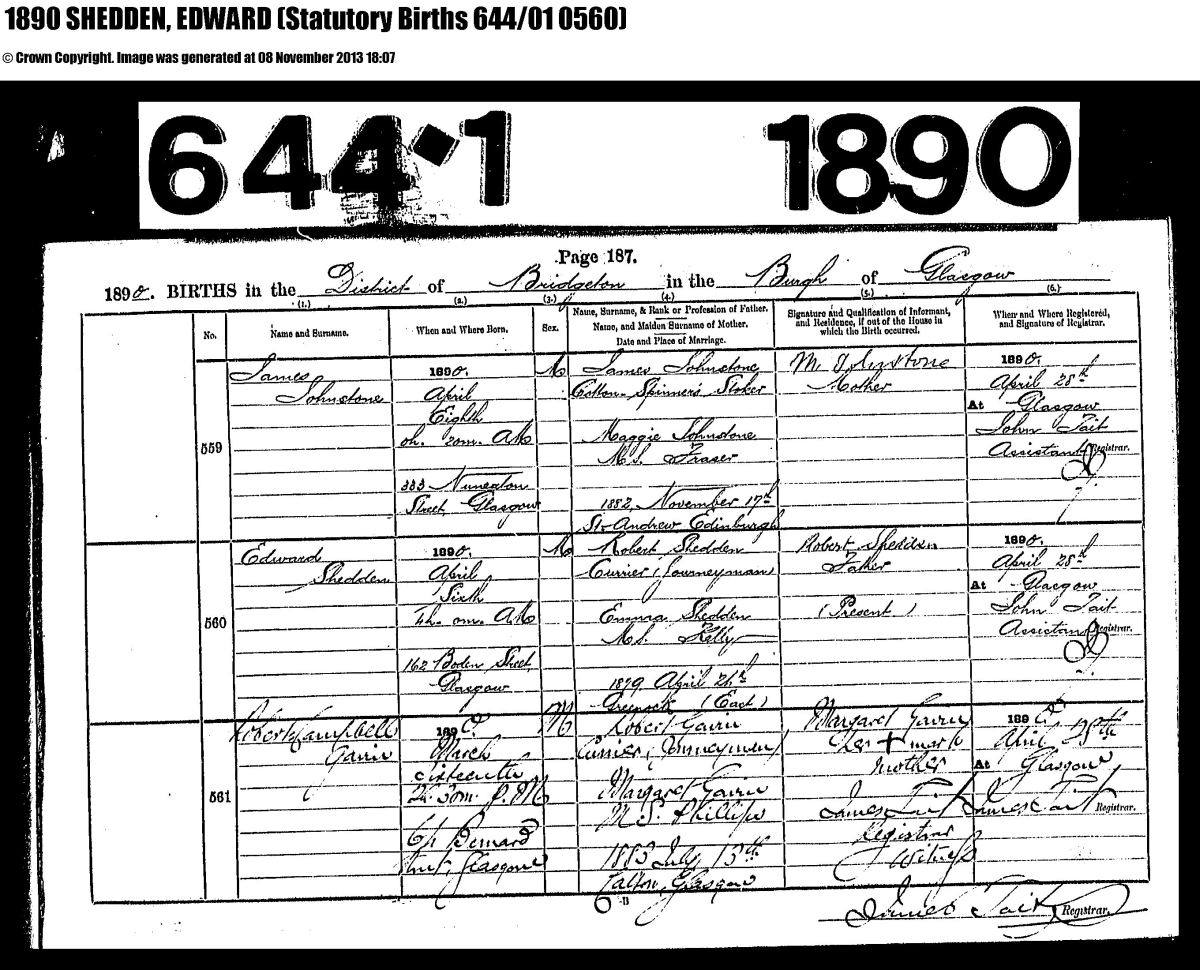 1890 SHEDDEN, EDWARD (Statutory Births 644/01 0560)
© Crown Copyright. Image was generated at 08 November 2013 18:07
644·1 1890
Page 187.
1890. BIRTHS in the District of Bridgeton in the Burgh of Glasgow
(1.) (2.) (3.) (4.) (5.) (6.)
No.
Name and Surname.
When and Where Born.
Sex.
Name, Surname, & Rank or Profession of Father.
Name, and Maiden Surname of Mother.
Date and Place of Marriage.
Signature and Qualification of Informant,
and Residence, if out of the House in
which the Birth occurred.
When and Where Registered,
and Signature of Registrar.
559
James
Johnstone
1890.
April
Eighth
0h. 20m. AM
333 Nuneaton
Street, Glasgow
M
James Johnstone
Cotton-Spinner's Stoker
Maggie Johnstone
M.S. Fraser
1882, November 17th
St. Andrew Edinburgh
M. Johnstone
Mother
1890.
April 28th
At Glasgow
John Tait
Assistant Registrar.
560
Edward
Shedden
1890.
April
Sixth
0m. AM
162 Boden Street
Glasgow
M
Robert Shedden
Currier (Journeyman)
Emma Shedden
M.S. Kelly
1879, April
Greenock (East)
Robert Shedden
Father
(Present)
1890.
April 28th
At Glasgow
John Tait
Assistant Registrar.
561
Robert Campbell
Gavin
1890.
March
Sixteenth
2h. 3m. P.M
Bernard
Street, Glasgow
M
Robert Gavin
Currier (Journeyman)
Margaret Gavin
M.S. Phillips
1883 July 13th
Calton, Glasgow
Margaret Gavin
Her + mark
Mother
James Tait
Registrar
Witness
1890
April 28th
At Glasgow
James Tait Registrar.
6 B
James Tait Registrar.